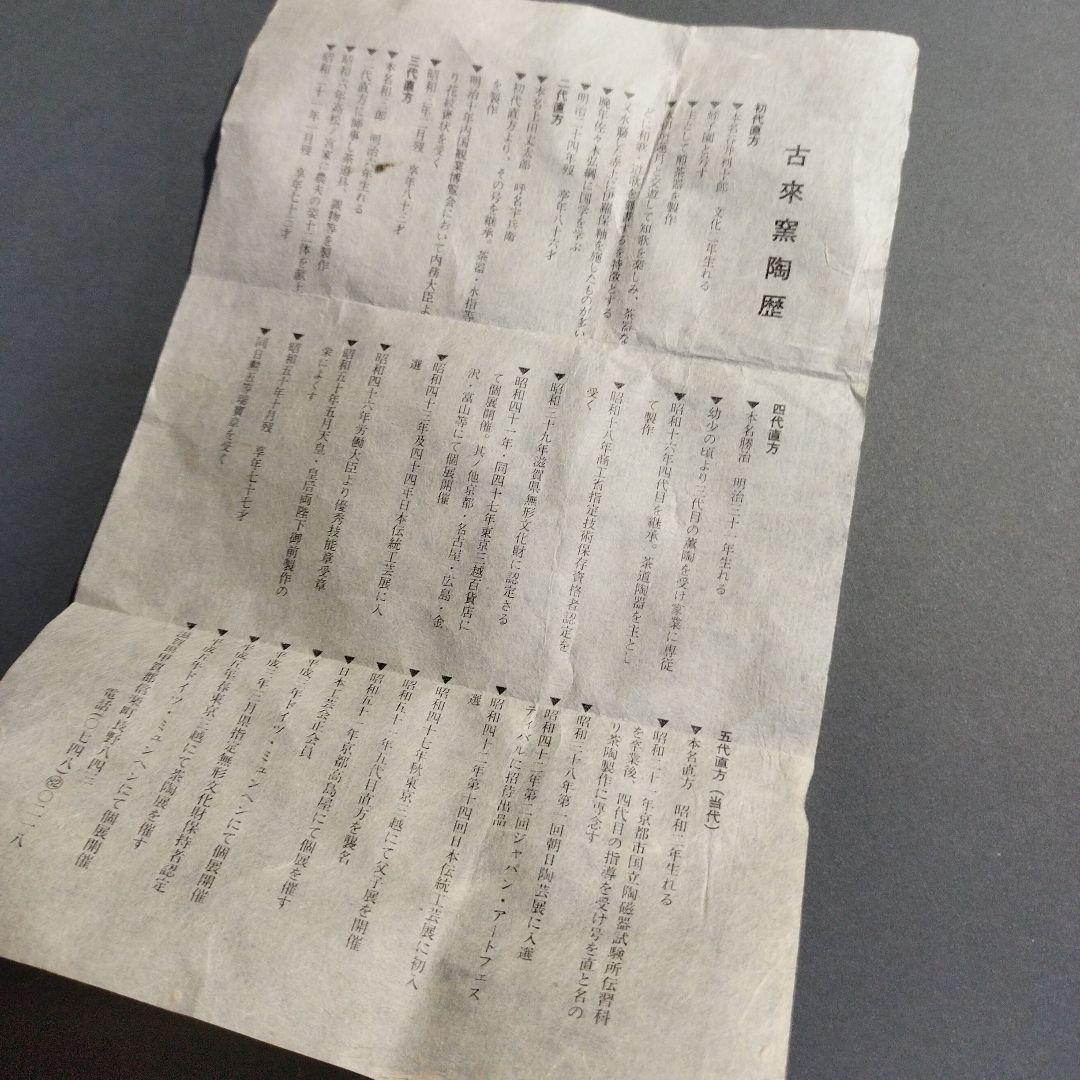 古來窯陶歴
初代直方
▼本名 文化二年生れる
と号す
▼主として煎茶器を製作
月と交遊して知歌を楽しみ、茶器な
どに和歌・ を特徴とする
又水簸した赤土に伊羅保釉を施したものが多い
▼晩年佐々木弘綱に国学を学ぶ
▼明治二十四年歿 享年八十六才
二代直方
▼本名上田丈太郎 呼名宇兵衛
▼初代直方より、その号を継承。茶器・水指等
を製作
▼明治十年内国観業博覧会において内務大臣よ
り花紋褒状を受く
▼昭和二年二月歿 享年八十二才
三代直方
▼本名和三郎 明治 年生れる
▼二代直方に師事し茶道具、置物等を製作
▼昭和六年高松ノ宮家に農夫の姿十二体を献上
▼昭和二十 年一月歿 享年七十三才
四代直方
▼本名勝治 明治三十一年生れる
▼幼少の頃より三代目の薫陶を受け家業に専従
▼昭和十六年四代目を継承。茶道陶器を主とし
て製作
▼昭和十八年商工省指定技術保存資格者認定を
受く
▼昭和三十九年滋賀県無形文化財に認定さる
▼昭和四十一年・同四十七年東京三越百貨店に
て個展開催。其ノ他京都・名古屋・広島・金
沢・富山等にて個展開催
▼昭和四十三年及四十四年日本伝統工芸展に入
選
▼昭和四十六年労働大臣より優秀技能章受章
▼昭和五十年五月天皇・皇后両陛下御前製作の
栄によくす
▼昭和五十年十月歿 享年七十七才
▼同日勲五等瑞寶章を受く
五代直方(当代)
▼本名直方 昭和二年生れる
▼昭和二十一年京都市国立陶磁器試験所伝習科
を卒業後、四代目の指導を受け号を直と名の
り茶陶製作に専念す
▼昭和二十八年第一回朝日陶芸展に入選
▼昭和四十二年第二回ジャパン・アートフェス
ティバルに招待出品
▼昭和四十二年第十四回日本伝統工芸展に初入
選
▼昭和四十七年秋東京三越にて父子展を開催
▼昭和五十一年五代目直方を襲名
▼昭和五十一年京都高島屋にて個展を催す
▼日本工芸会正会員
▼平成二年ドイツ・ミュンヘンにて個展開催
▼平成三年三月県指定無形文化財保持者認定
▼平成五年春東京三越にて茶陶展を催す
▼平成五年ドイツ・ミュンヘンにて個展開催
滋賀県甲賀郡信楽町長野八四三
電話(〇七四八)82〇二一八